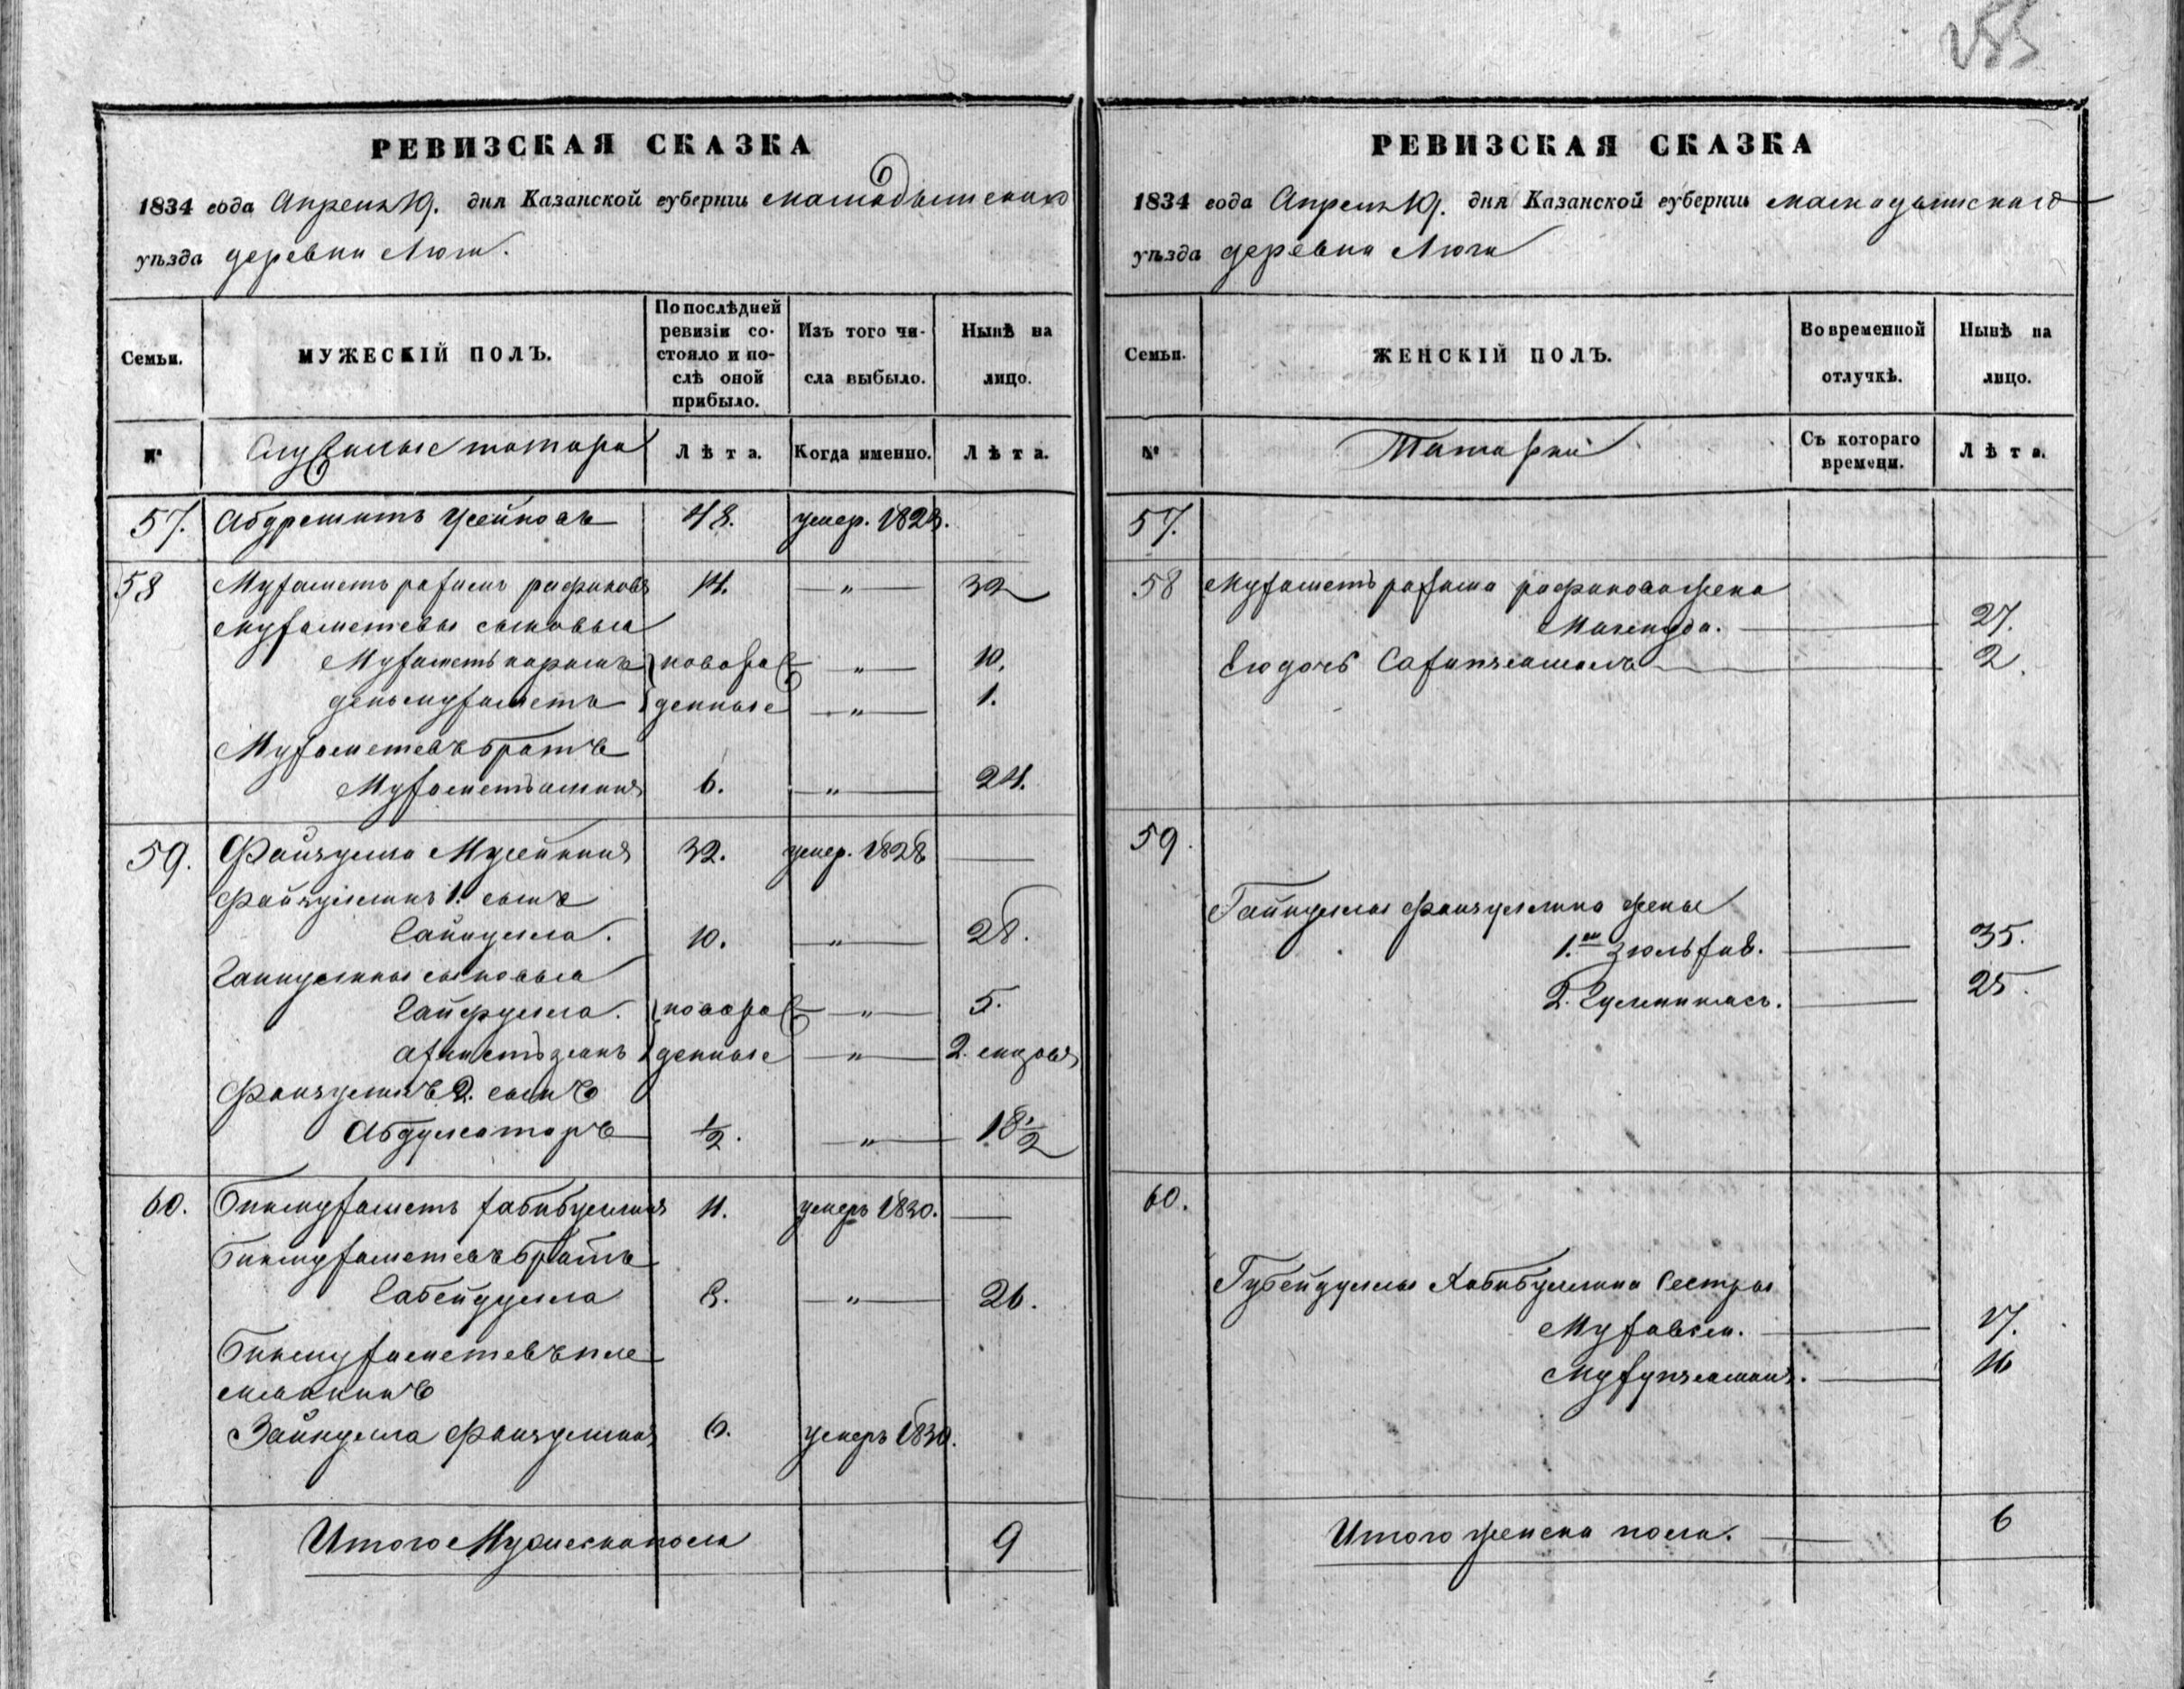 255
РЕВИЗСКАЯ СКАЗКА
1834 года Апреля 19. дня Казанской губернiи мамадышского
уѣзда деревни Люги.
Семьи.
МУЖЕСКIЙ ПОЛЪ.
По послѣдней ревизiи состояло и послѣ оной прибыло.
Изъ того числа выбыло.
Нынѣ на лицо.
№
Служилые татара
Лѣта.
Когда именно.
Лѣта.
57. Абдрешитъ Усейновъ 48. умер. 1828.
58 Мухаметъ рахимъ рафиковъ 14. — " — 32
мухаметевы сыновья
Мухаметь каримъ новорож — " — 10.
деньмухаметъ денные — " — 1.
Мухаметевъ братъ
Мухаметь аминь 6. — " — 24.
59. Файзулла Мусейкинъ 32. умер. 1828 —
файзуллинъ 1. сынъ
Гайнулла. 10. — " — 28.
Гайнуллины сыновья
Гайфулла. новорож — " — 5.
ахметьзянъ денные — " — 2. месяц
Файзуллинъ 2. сынъ
Абдулсатаръ ½. — " — 18½
60. Бикмухаметь хабибуллинъ 11. умеръ 1830. —
Бикмухаметевъ братъ
Габейдулла 8. — " — 26.
Бикмухаметевъ пле
мянникъ
Зайнулла файзуллинъ 6. умеръ 1830.
Итого Мужеска пола 9
РЕВИЗСКАЯ СКАЗКА
1834 года Апреля 19. дня Казанской губернiи мамадышскаго
уѣзда деревни Люги
Семьи.
ЖЕНСКIЙ ПОЛЪ.
Во временной отлучкѣ.
Нынѣ на лицо.
№
Татарки
Съ котораго времени.
Лѣта.
57.
58 Мухаметь рахима рафикова жена
27.
Ево дочь 2.
59.
Гайнуллы файзуллина жены
1.я зюльхаб. — 35.
2. — 25.
60.
Губейдуллы Хабибуллина Сестры
17.
16
Итого женска пола. — 6